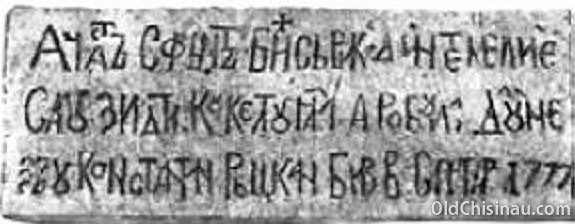 АЧАСТЪ СФНТЪ БИСЬРКЪ ДИН ТЕМЕЛИЕ
САУ ЗИДИТ КУ КЕЛТУІАЛА РОБУЛ ДУМНЕ
ЗЪУ КОНСТАТИН РЫШКАН БИВ В 1777
OldChisinau.com